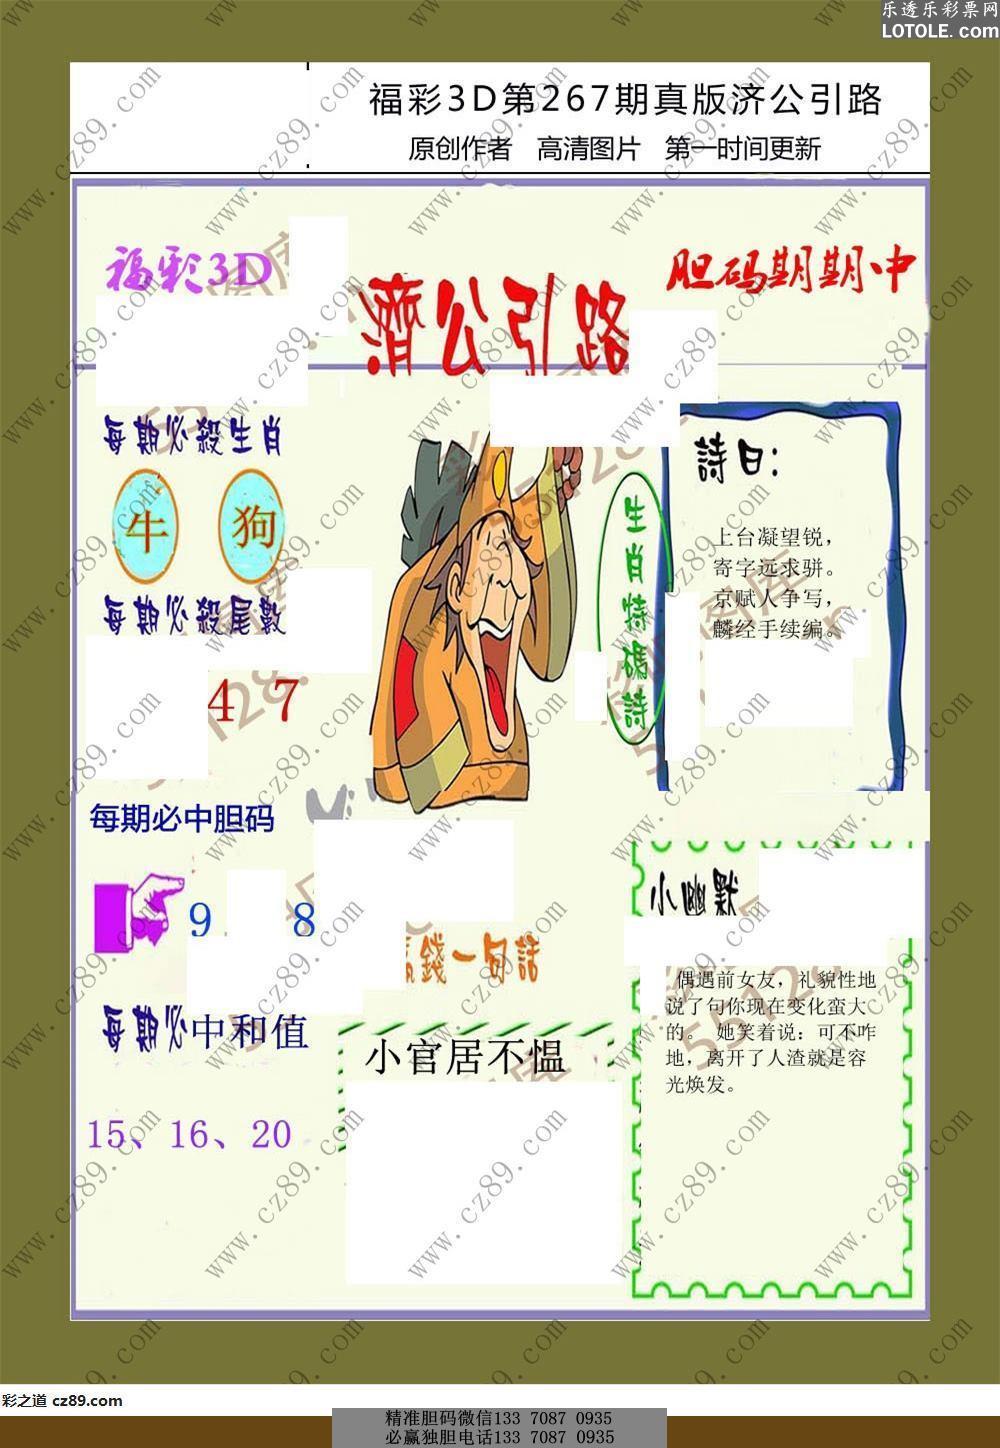 乐透乐彩票网
LOTOLE.com
福彩3D第267期真版济公引路
原创作者 高清图片 第一时间更新
福彩3D
濟公引路
胆码期期中
每期必殺生肖
牛 狗
每期必殺尾數
4 7
生肖特碼詩
詩曰:
上台凝望锐，
寄字远求骈。
京赋人争写，
麟经手续编。
每期必中胆码
9 8
每期必中和值
15、16、20
錢一句話
小官居不愠
小幽默
偶遇前女友，礼貌性地
说了句你现在变化蛮大
的。 她笑着说：可不咋
地，离开了人渣就是容
光焕发。
www.cz89.com
彩之道 cz89.com
精准胆码微信133 7087 0935
必赢独胆电话133 7087 0935